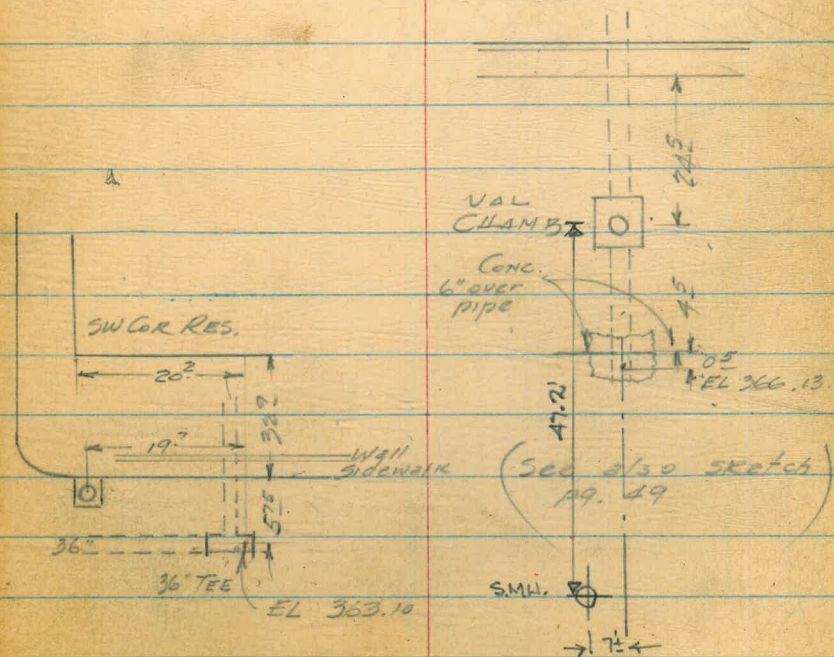 SW COR RES.
20²
32⁹
19⁷
Wall
Sidewalk
5⁷⁵
36"
36" TEE
EL 363.10
24⁵
VAL
CHAMB
CONC.
6" over
pipe
4⁵
0⁵
EL 366.13
47.2'
(See also sketch
pg. 49)
S.M.H.
7⁴